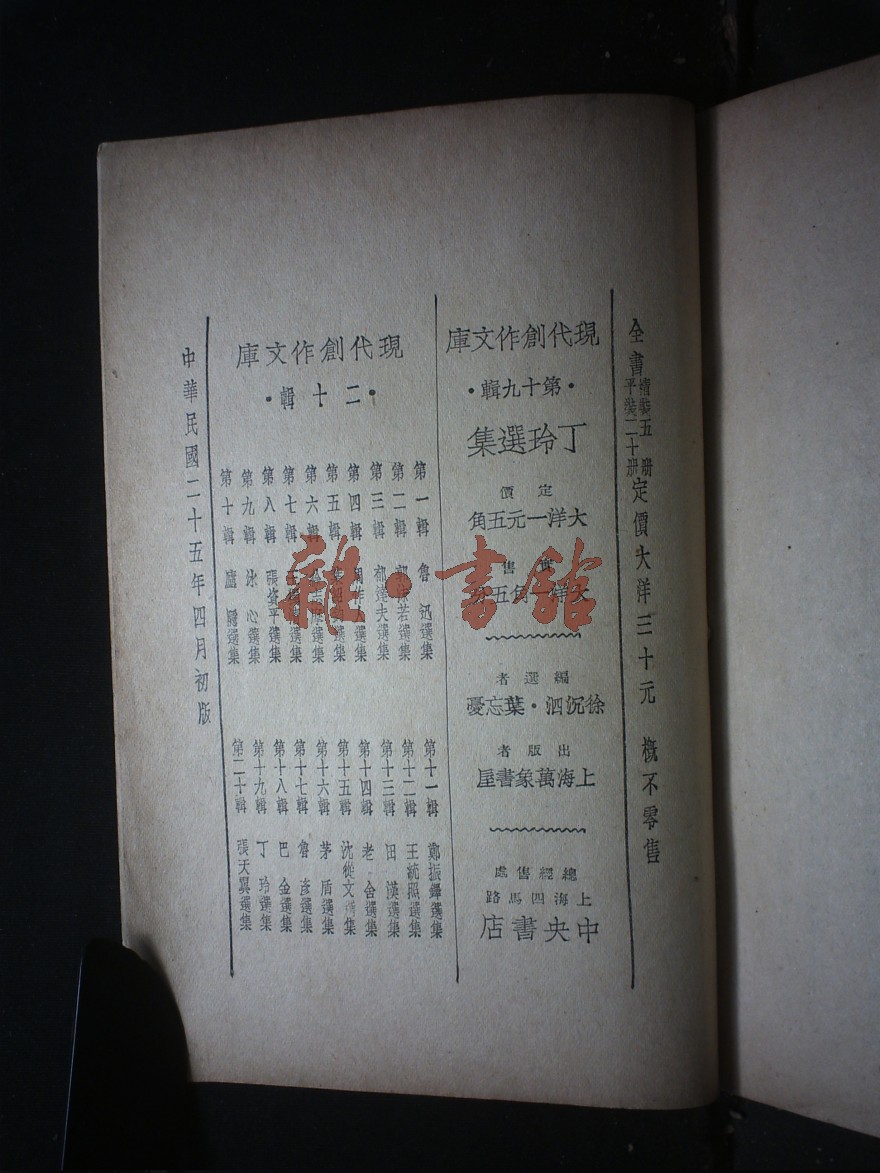 全書精裝五册平裝二十册定價大洋三十元 概不零售
現代創作文庫
·第十九輯·
丁玲選集
定價
大洋一元五角
售
大洋一角五
編選者
徐沉泗·葉忘憂
出版者
上海萬象書屋
總經售處
上海四馬路
中央書店
現代創作文庫
·二十輯·
第一輯 魯迅選集
第二輯 郭沫若選集
第三輯 郁達夫選集
第四輯 周作人選集
第五輯 選集
第六輯 選集
第七輯 王 選集
第八輯 張資平選集
第九輯 冰心選集
第十輯 廬隱選集
第十一輯 鄭振鐸選集
第十二輯 王統照選集
第十三輯 田漢選集
第十四輯 老舍選集
第十五輯 沈從文選集
第十六輯 茅盾選集
第十七輯 魯彦選集
第十八輯 巴金選集
第十九輯 丁玲選集
第二十輯 張天翼選集
中華民國二十五年四月初版
雜·書館